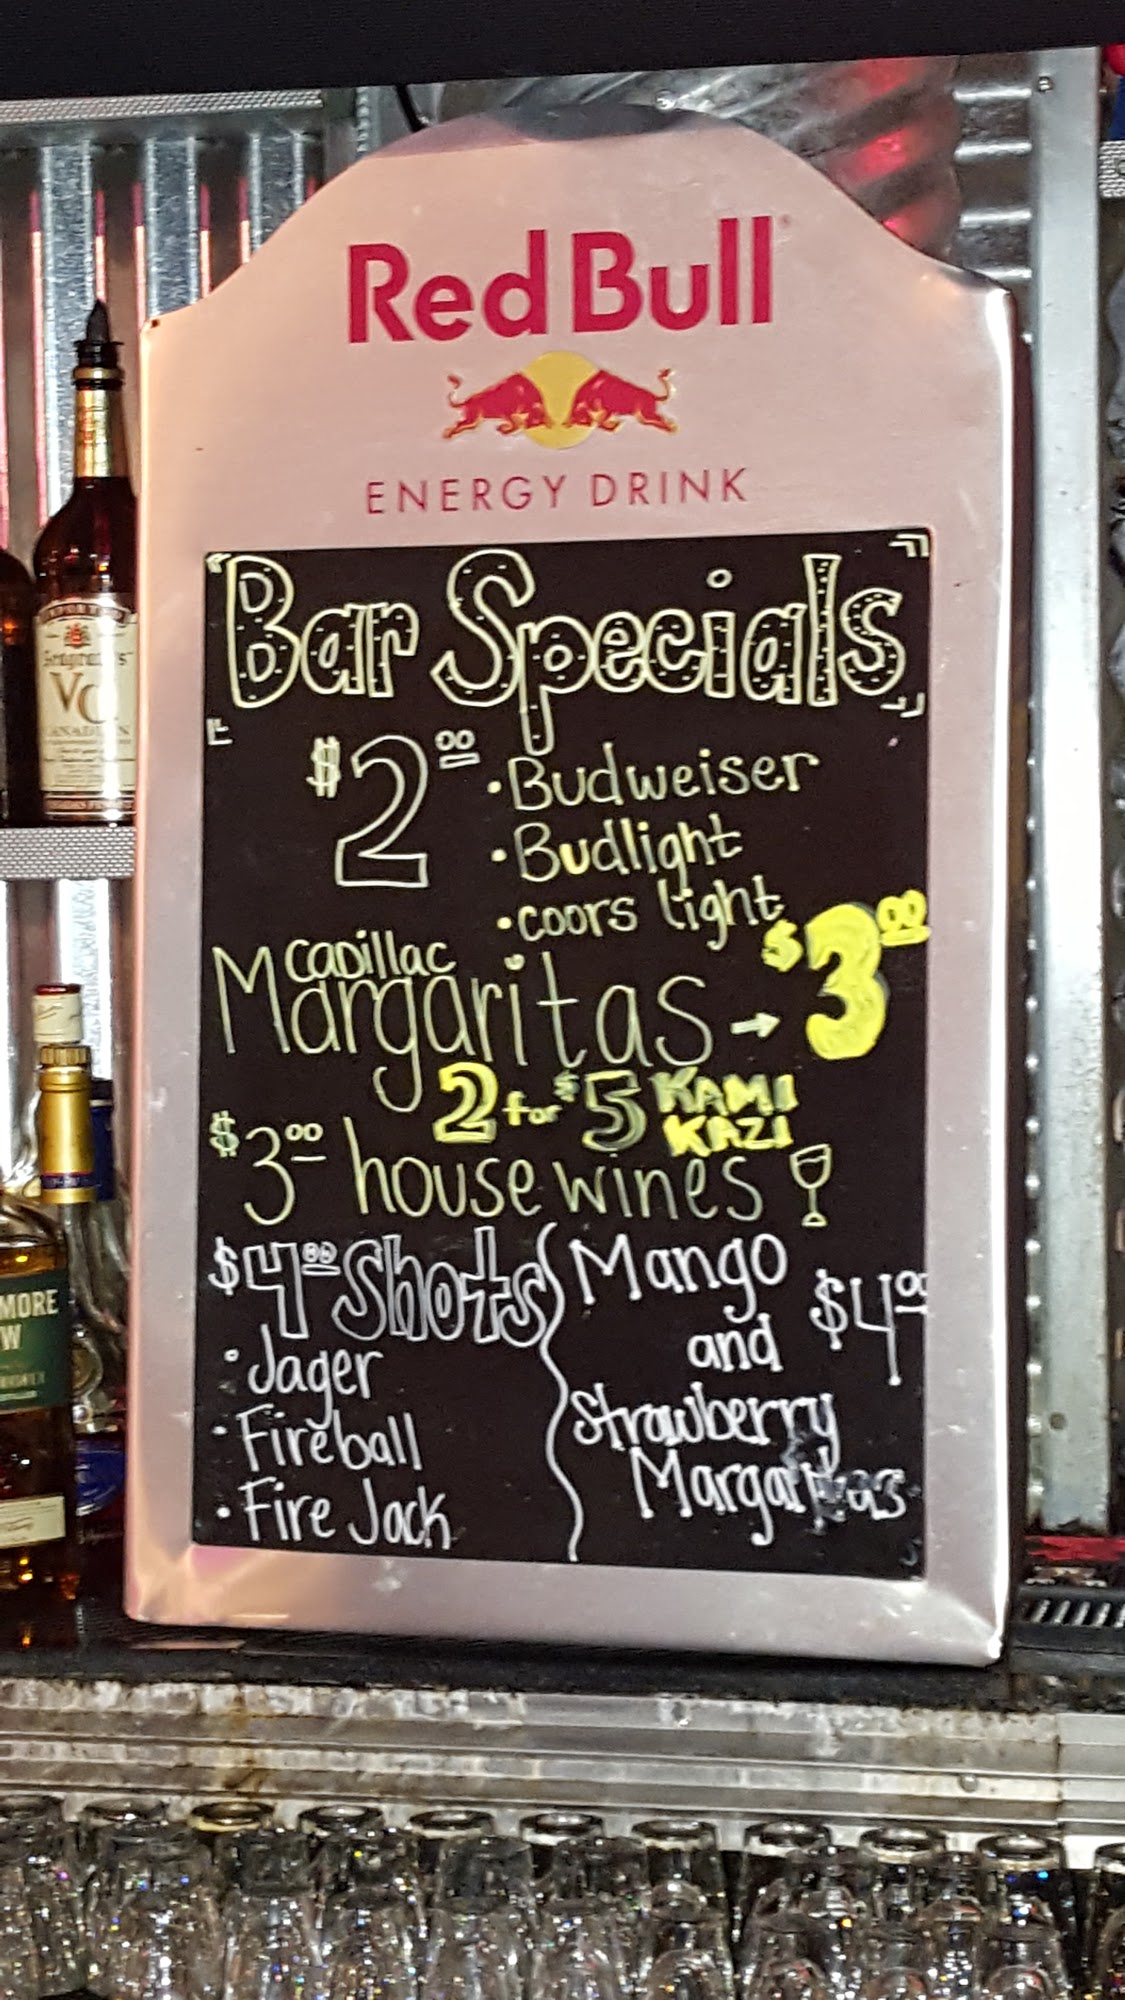 Red Bull
ENERGY DRINK
Bar Specials
$2.00
• Budweiser
• Budlight
• coors light
cadillac
Margaritas → $3.00
2 for $5 KAMI
KAZI
$3.00 house wines
$4.00 Shots
• Jager
• Fireball
• Fire Jack
Mango
and
Strawberry
Margaritas
$4.00
Seagram's
VO
MORE